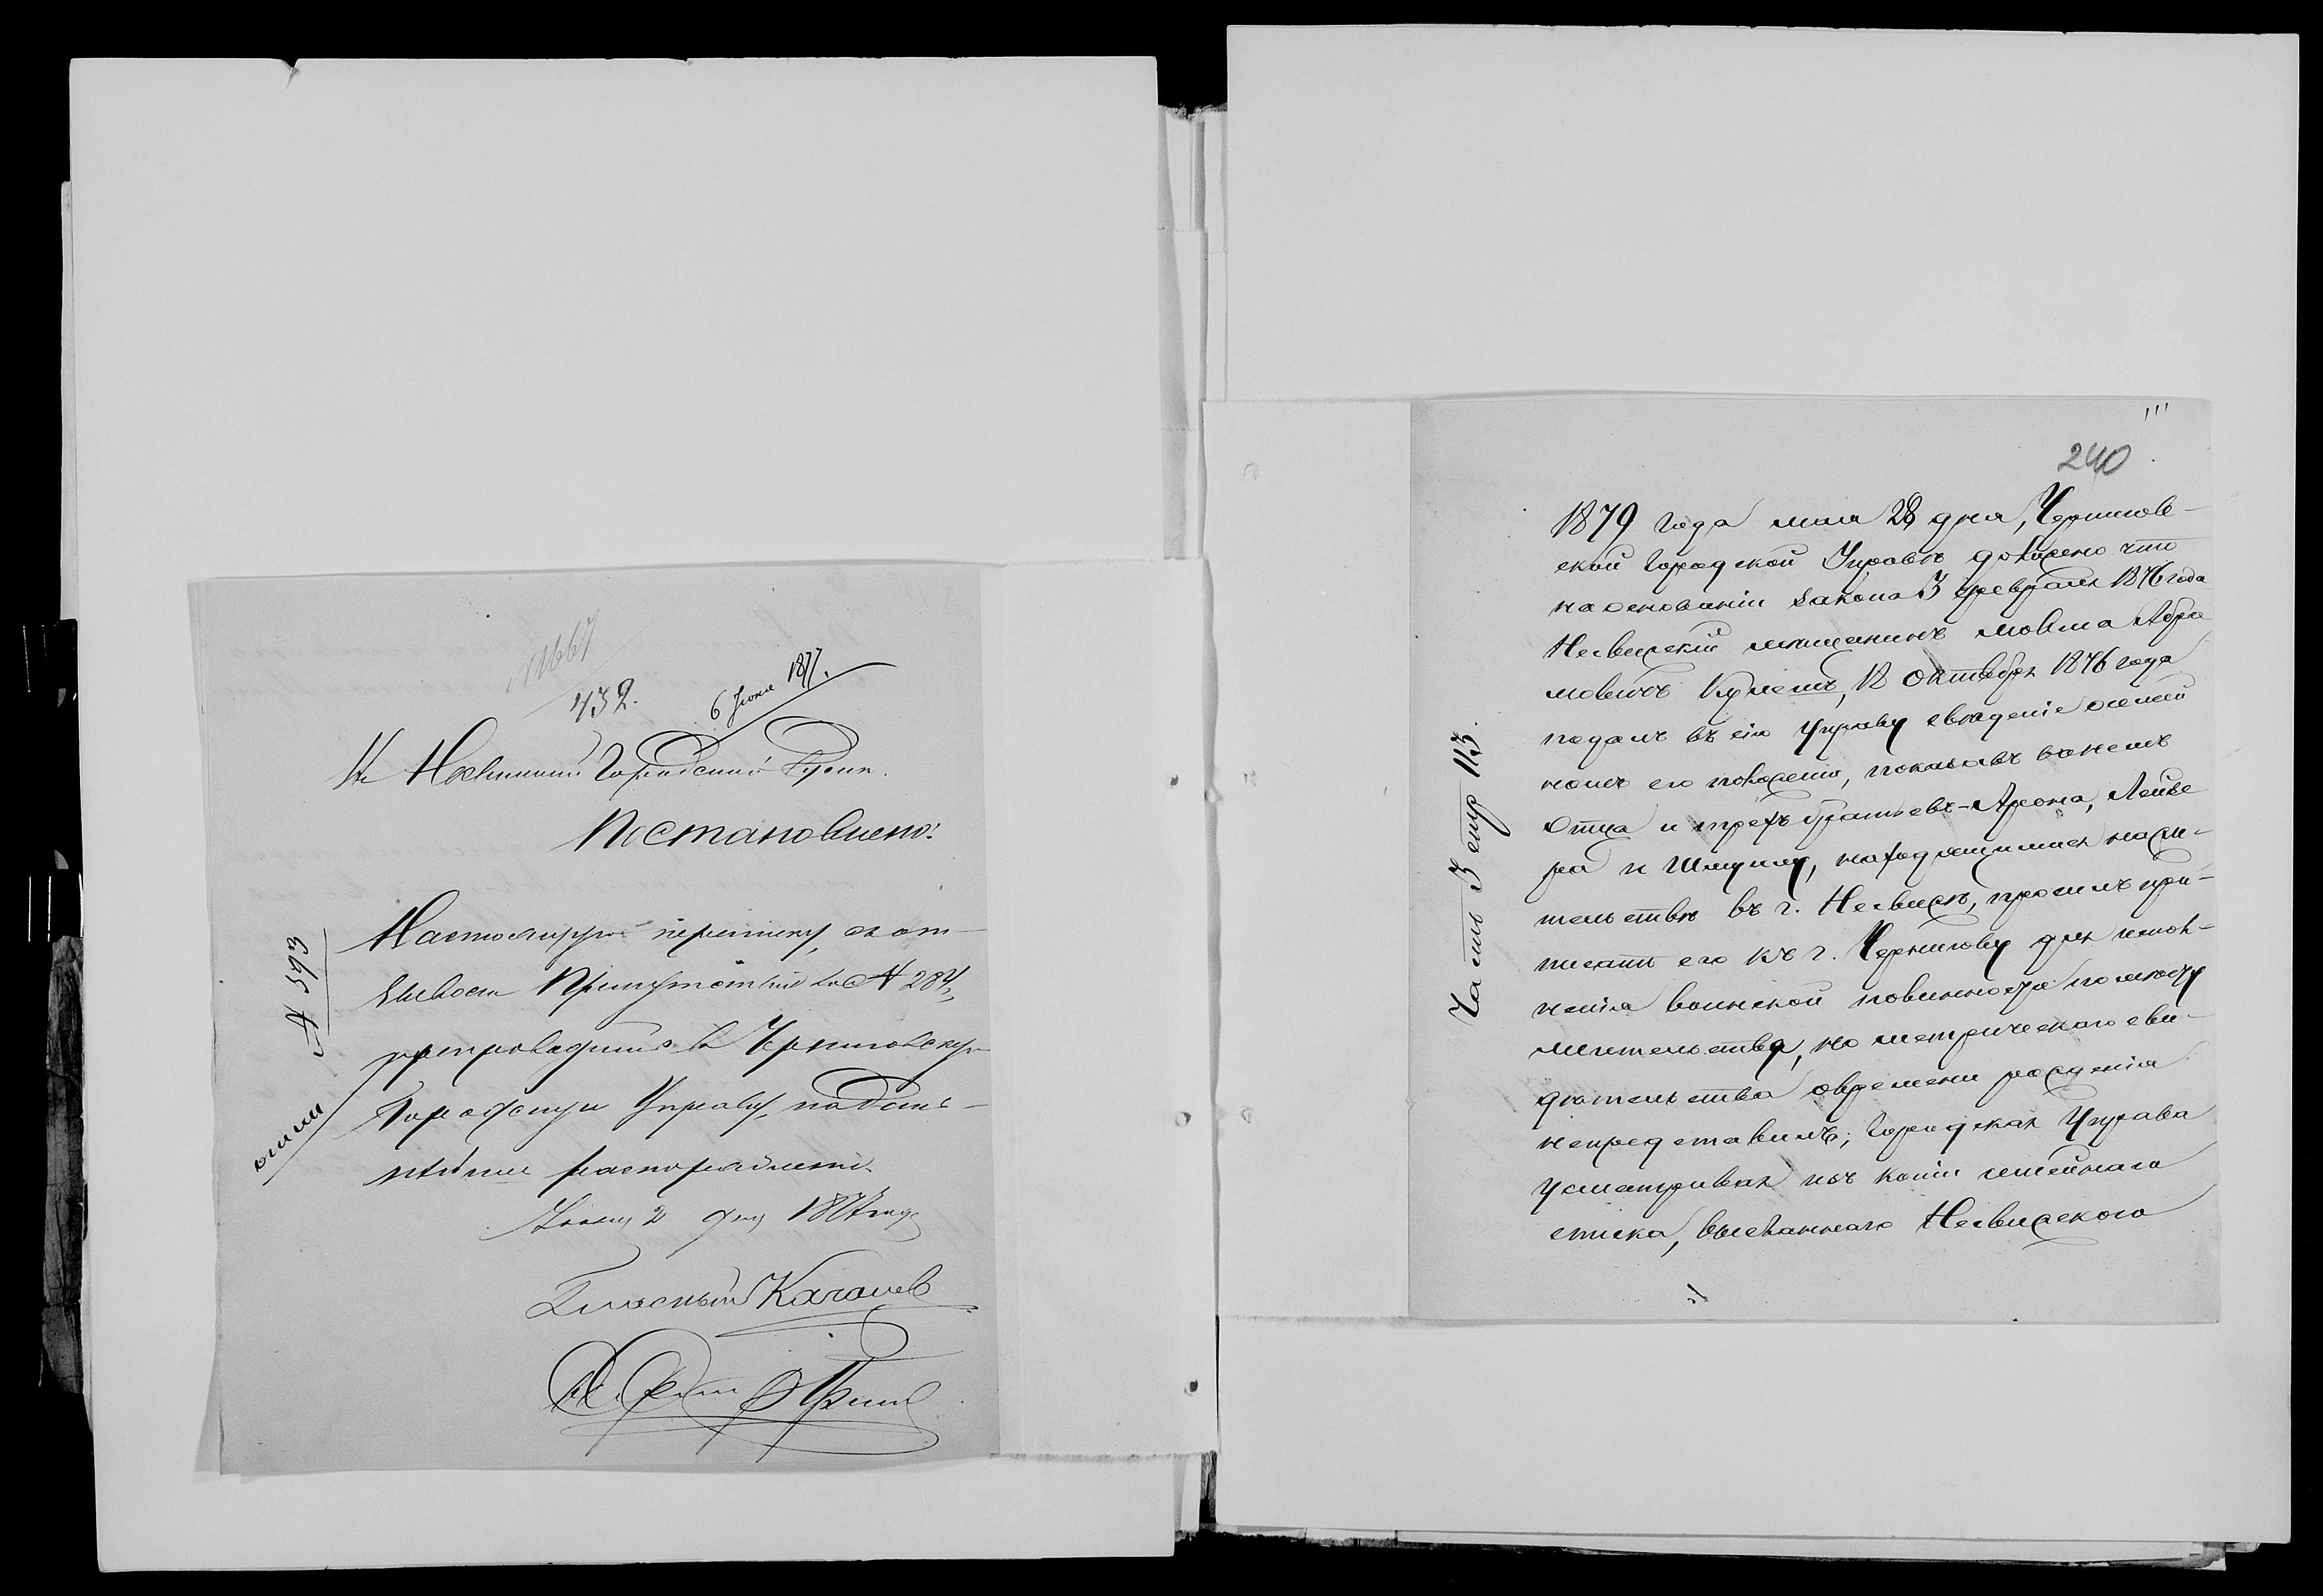 432.
6 Іюня 1877.
Городской
Постановлено:
Настоящую переписку, съ от-
Присутствія за № 284,
препроводить въ Черниговскую
Городскую Управу, на даль-
нѣйшее распоряженіе.
2 дня 1877 года
Гласный Качанов
№ 593
240
1879 года мая 28 дня, Чернигов-
ской Городской Управѣ доложено что
на основаніи закона 3 февраля 1876 года
Несвижскій мѣщанинъ Мовша Абра
мовичъ Кулешъ, 12 Октября 1876 года
подалъ въ сію Управу свѣденіе о семей
номъ его положеніи, показавъ въ немъ
Отца и трехъ братьевъ - Арона, Лейзе
ра и Шмуилу, находящимися на жи-
тельствѣ въ г. Несвижѣ, просилъ при-
писать его къ г. Чернигову для испол-
ненія воинской повинности по мѣсту
жительства, но метрическаго сви-
дѣтельства о времени рожденія
непредставилъ; Городская Управа
усматривая изъ копіи семейнаго
списка, высланнаго Несвижскою
Часть 3 стр 113.